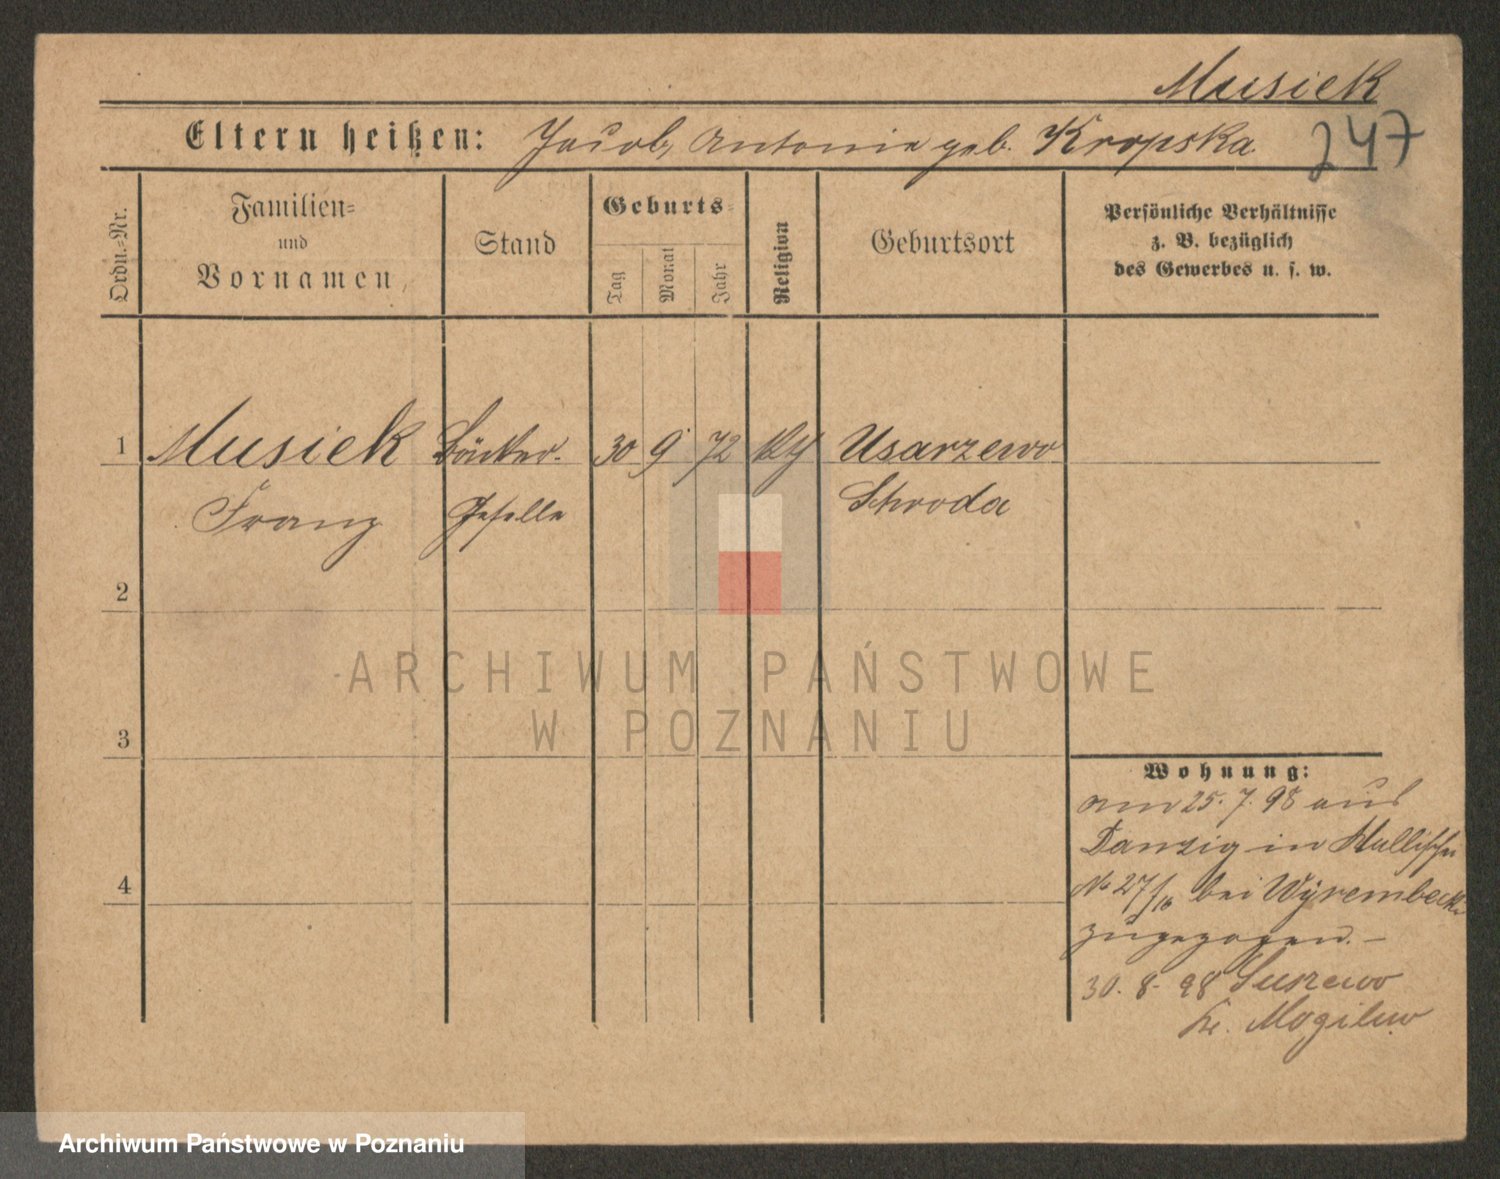 Musiek
Eltern heißen: Jacob, Antonie geb. Kropska.
247
Ordn.=Nr.
Familien=
und
Vornamen
Stand
Geburts=
Tag
Monat
Jahr
Religion
Geburtsort
Persönliche Verhältnisse
z. B. bezüglich
des Gewerbes u. s. w.
1 Musiek Bäcker- 30 9 72 Usarzewo
Franz Geselle Schroda
2
3
4
Wohnung:
am 25. 7. 98 aus
Danzig in
No 27/ bei Wyrembeck
zugezogen. –
30. 8. 98
Kr. Mogilno
ARCHIWUM PAŃSTWOWE
W POZNANIU
Archiwum Państwowe w Poznaniu